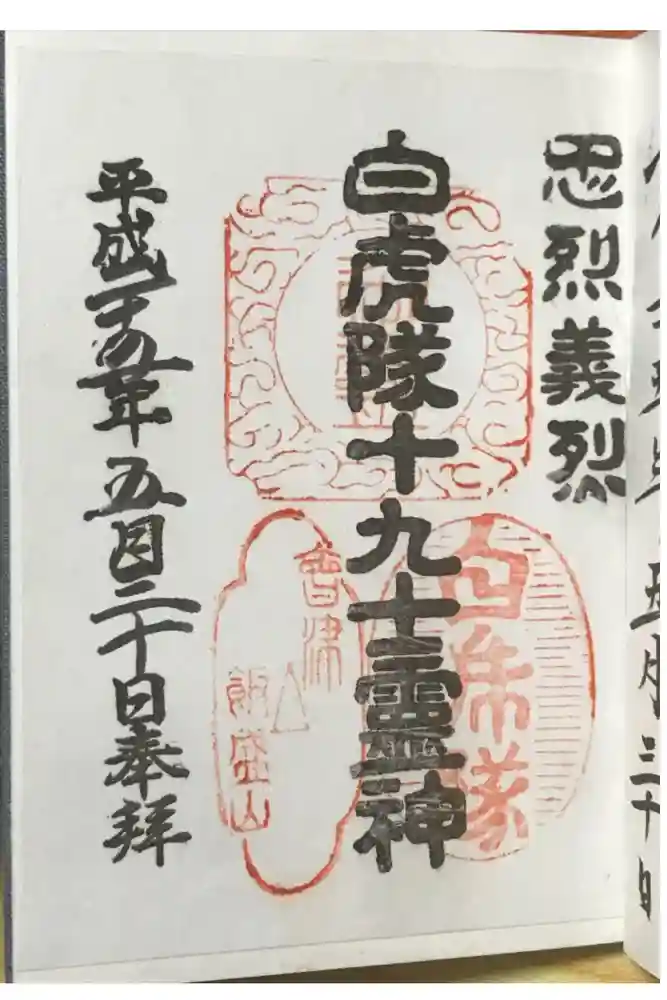 五月三十日
忠烈義烈
白虎隊十九士靈神
平成二十五年五月三十日奉拝
白虎隊
會津
飯盛山